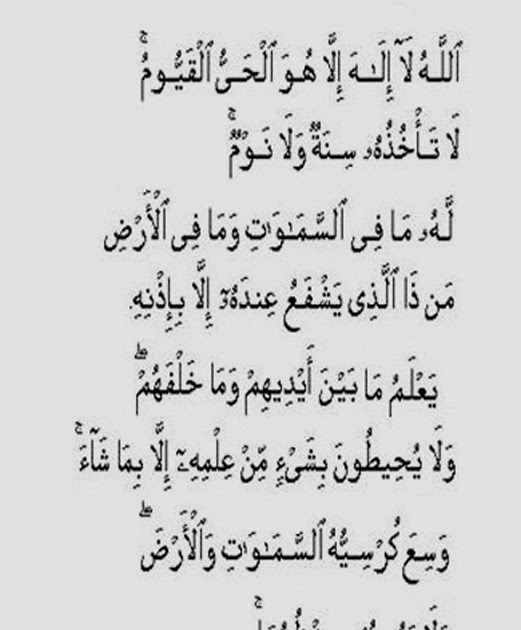 ٱللَّـهُ لَآ إِلَـٰهَ إِلَّا هُوَ ٱلْحَىُّ ٱلْقَيُّومُ ۚ
لَا تَأْخُذُهُۥ سِنَةٌ وَلَا نَوْمٌ ۚ
لَّهُۥ مَا فِى ٱلسَّمَـٰوَٰتِ وَمَا فِى ٱلْأَرْضِ
مَن ذَا ٱلَّذِى يَشْفَعُ عِندَهُۥٓ إِلَّا بِإِذْنِهِۦ
يَعْلَمُ مَا بَيْنَ أَيْدِيهِمْ وَمَا خَلْفَهُمْ ۖ
وَلَا يُحِيطُونَ بِشَىْءٍ مِّنْ عِلْمِهِۦٓ إِلَّا بِمَا شَآءَ ۚ
وَسِعَ كُرْسِيُّهُ ٱلسَّمَـٰوَٰتِ وَٱلْأَرْضَ ۖ